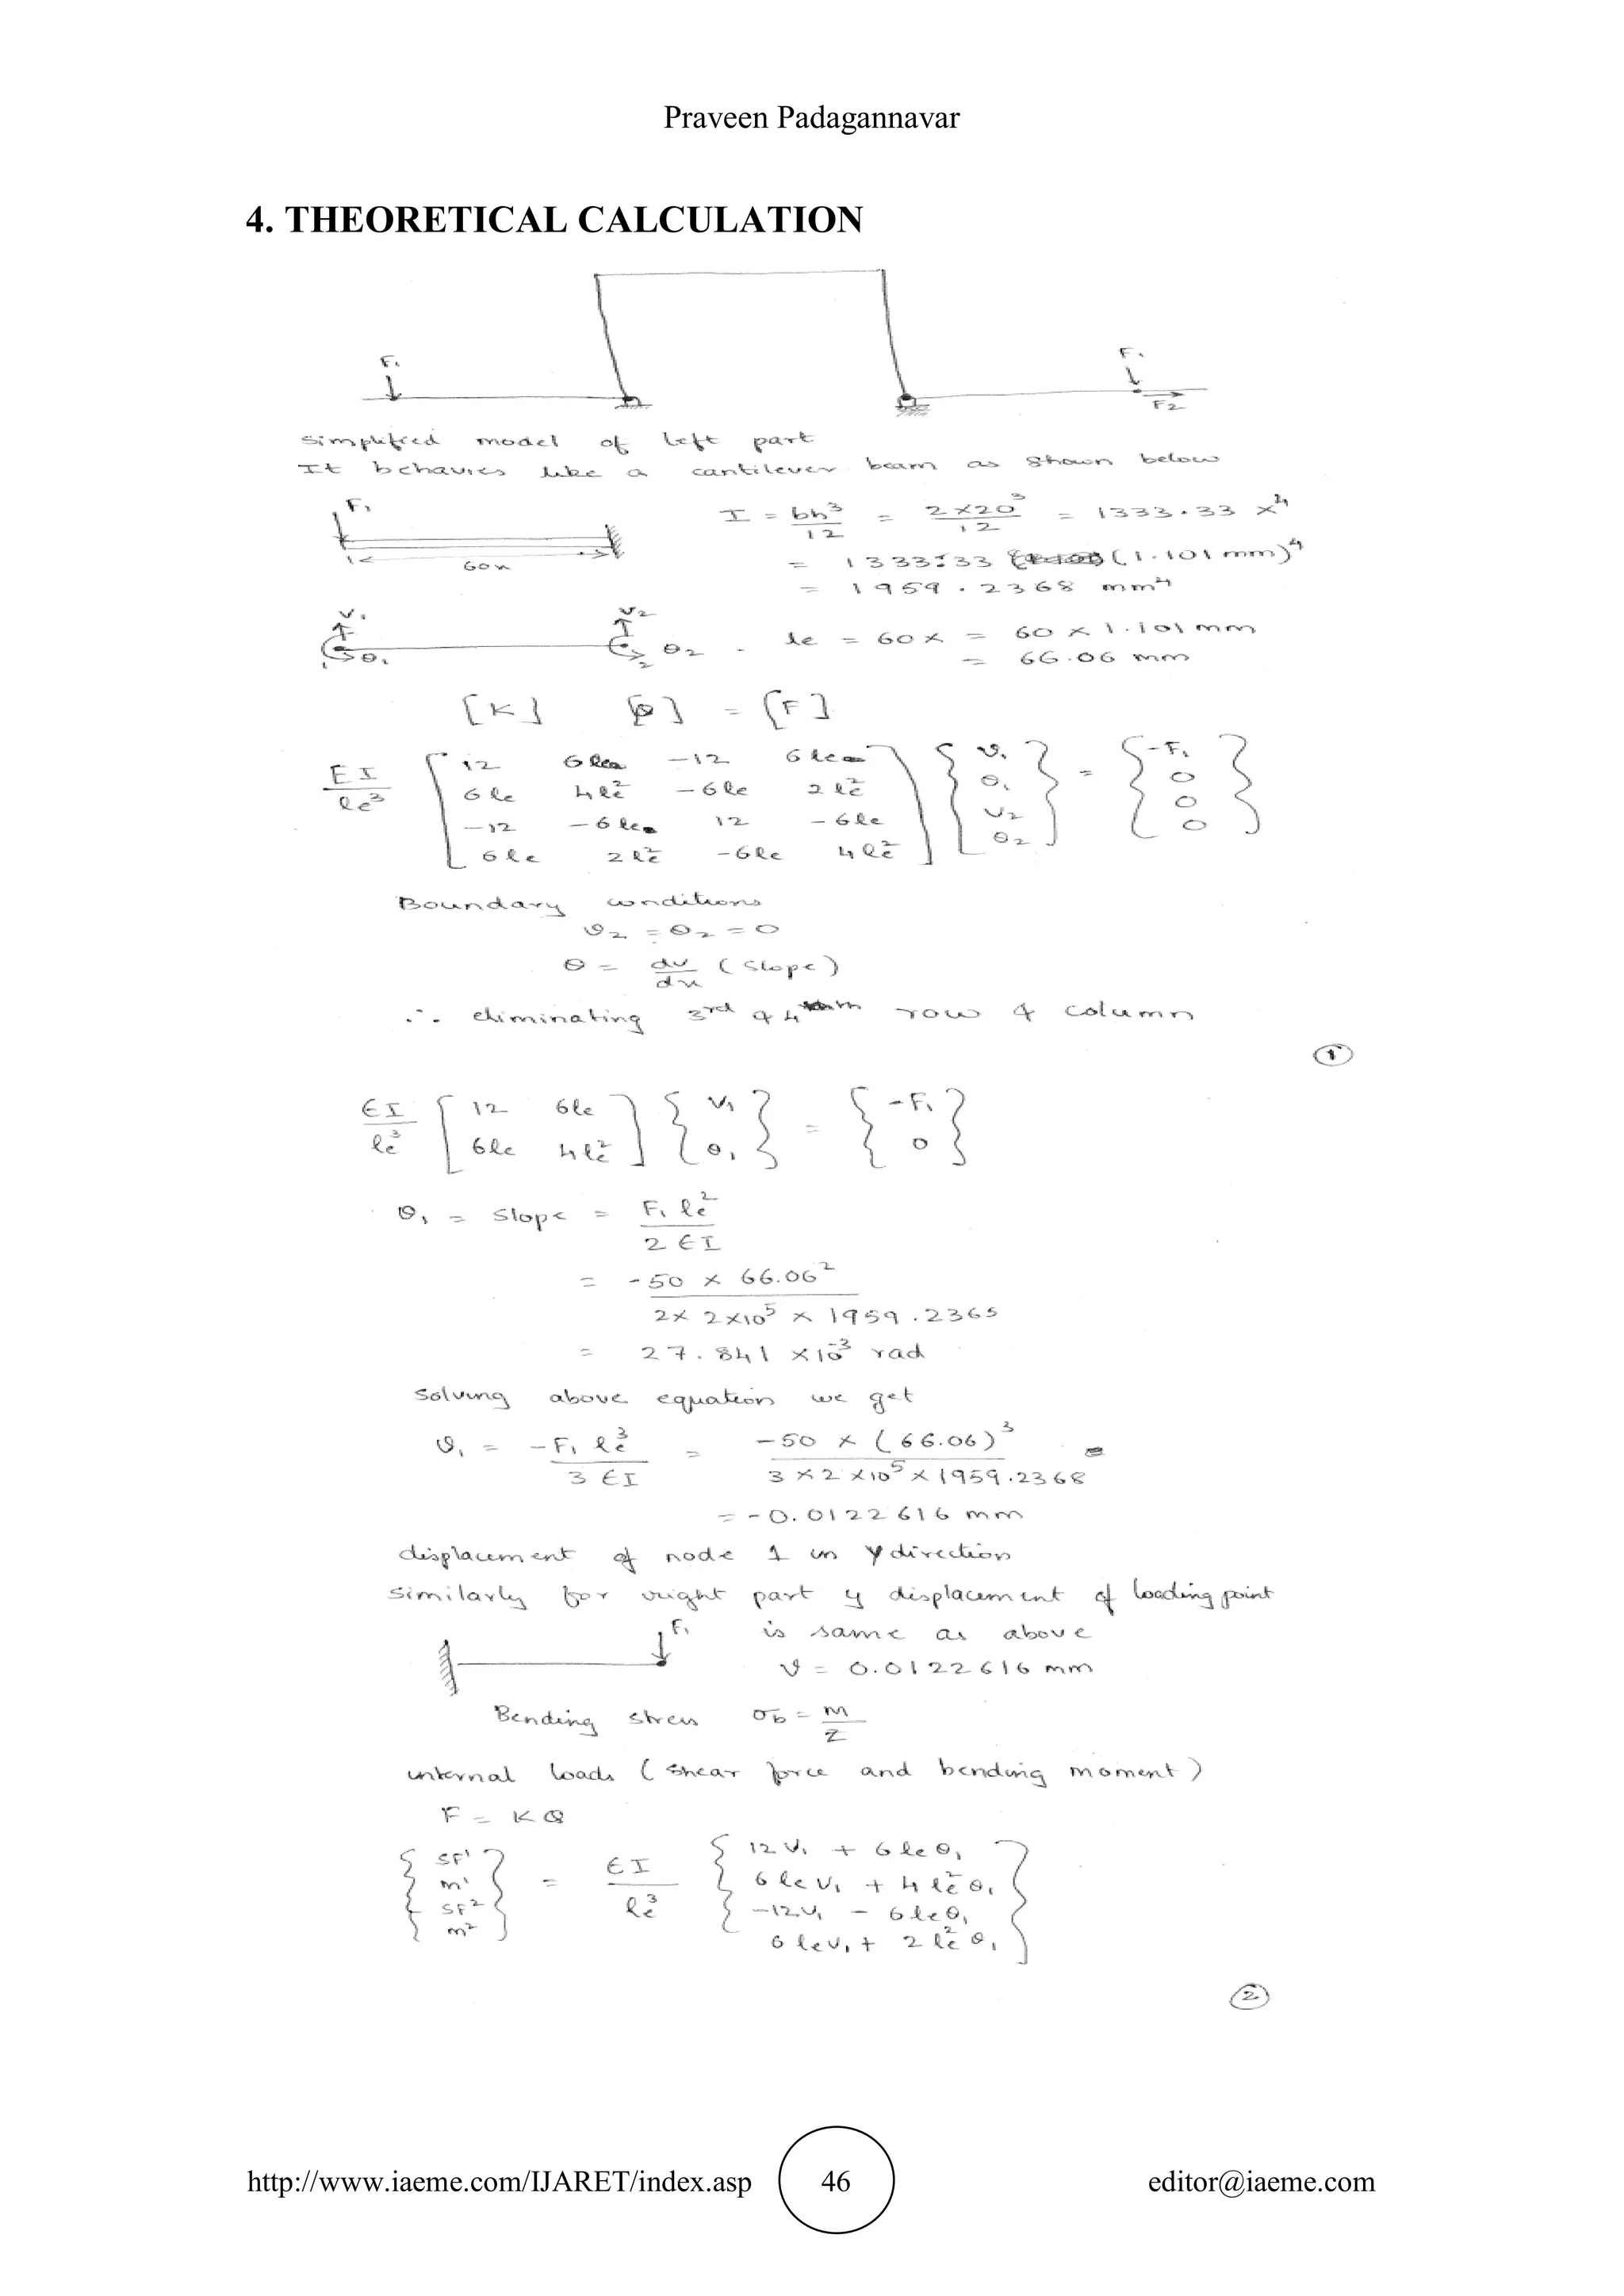 Praveen Padagannavar
4. THEORETICAL CALCULATION
F₁
F₁
F2
Simplified model of left part
It behavies like a cantilever beam as shown below
F₁
60x
I = bh³/12 = 2×20³/12 = 1333.33 x⁴
= 1333.33 (1.101 mm)⁴
= 1959.2368 mm⁴
v₁ θ₁ 1
v2 θ2 2
le = 60x = 60 × 1.101 mm
= 66.06 mm
[K] [Q] = [F]
EI/le³ [12 6le -12 6le] {v₁} = {-F₁}
[6le 4le² -6le 2le²] {θ₁} {0}
[-12 -6le 12 -6le] {v2} {0}
[6le 2le² -6le 4le²] {θ2} {0}
Boundary conditions
v2 = θ2 = 0
θ = dv/dx (slope)
∴ eliminating 3rd & 4th row & column
①
EI/le³ [12 6le] {v₁} = {-F₁}
[6le 4le²] {θ₁} {0}
θ₁ = slope = F₁ le²/2 EI
= -50 × 66.06²/2× 2×10⁵ × 1959.2365
= 27.841 ×10⁻³ rad
Solving above equation we get
v₁ = -F₁ le³/3 EI = -50 × (66.06)³/3 × 2 ×10⁵ × 1959.2368 =
= -0.0122616 mm
displacement of node 1 in y direction
Similarly for right part y displacement of loading point
F₁ is same as above
v = 0.0122616 mm
Bending stress σb = M/Z
internal loads (shear force and bending moment)
F = KQ
{SF¹} = EI/le³ {12v₁ + 6leθ₁}
{m¹} {6lev₁ + 4le²θ₁}
{SF²} {-12v₁ - 6leθ₁}
{m²} {6lev₁ + 2le²θ₁}
②
http://www.iaeme.com/IJARET/index.asp 46 editor@iaeme.com